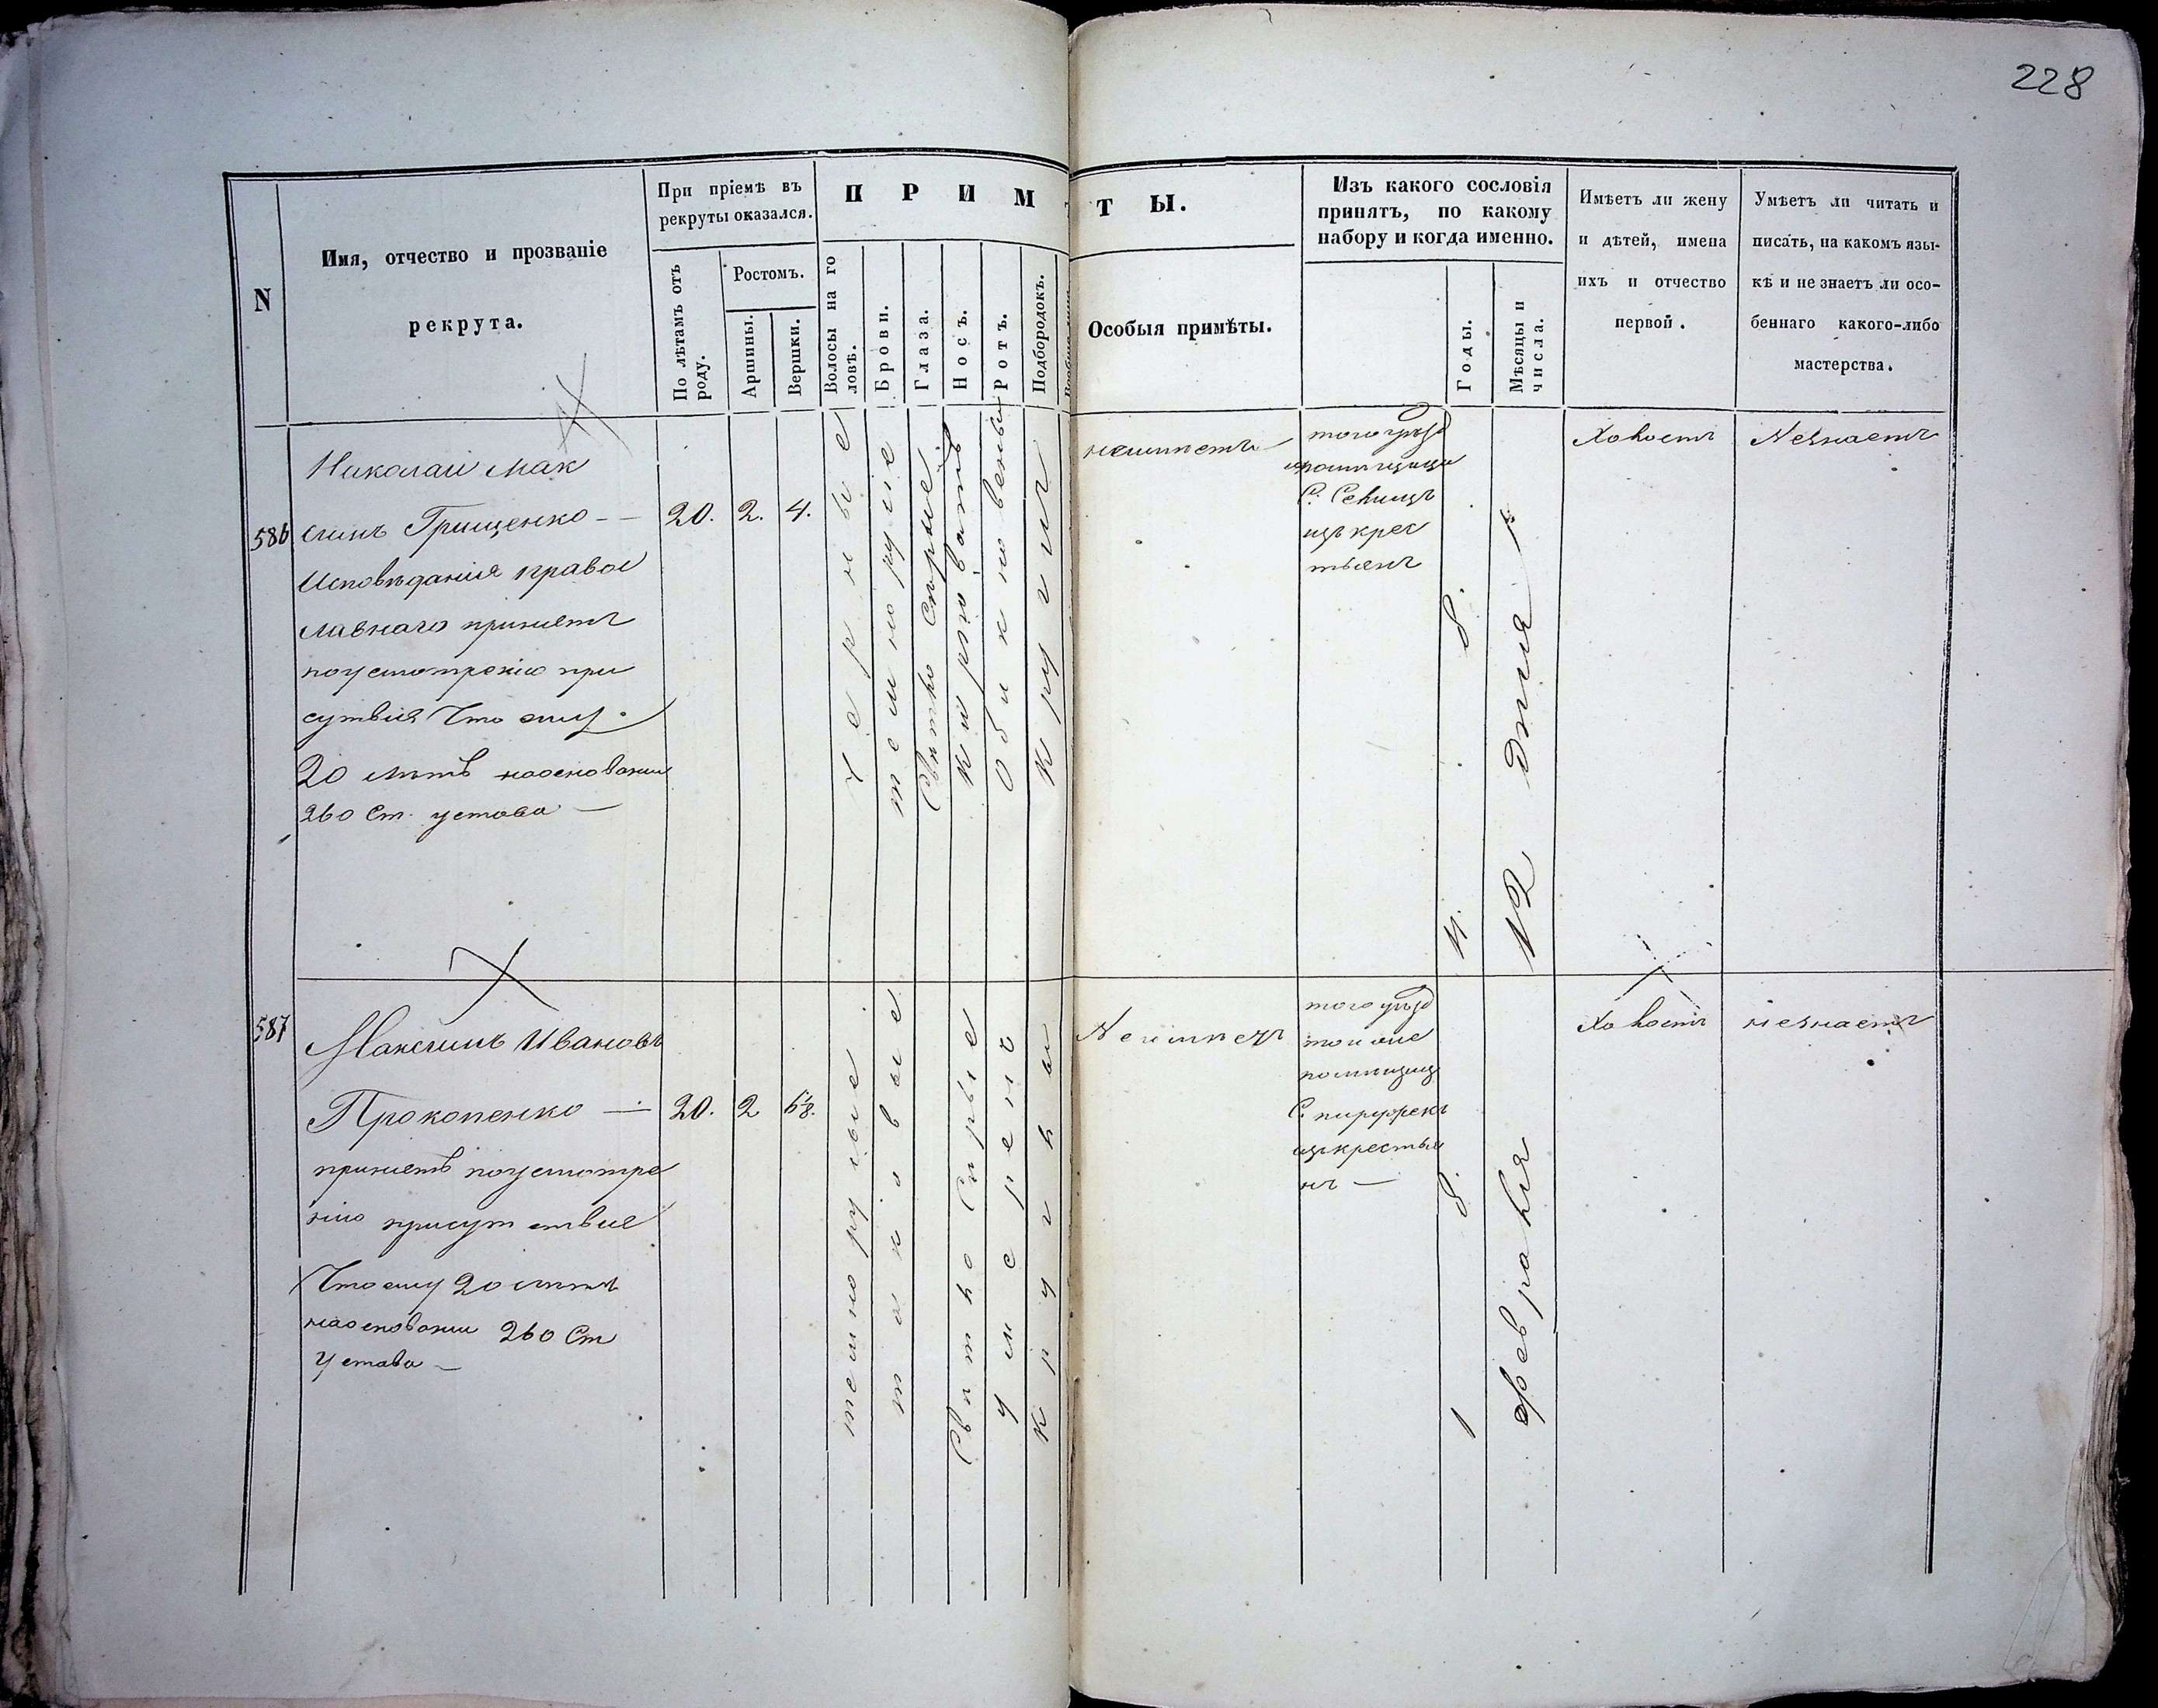 228
N
Имя, отчество и прозваніе
рекрута.
При пріемѣ въ
рекруты оказался.
По лѣтамъ отъ
роду.
Ростомъ.
Аршины.
Вершки.
П Р И М Т Ы.
Волосы на го
ловѣ.
Брови.
Глаза.
Носъ.
Ротъ.
Подбородокъ.
Особыя примѣты.
Изъ какого сословія
принятъ, по какому
набору и когда именно.
Годы.
Мѣсяцы и
числа.
Имѣетъ ли жену
и дѣтей, имена
ихъ и отчество
первой.
Умѣетъ ли читать и
писать, на какомъ язы-
кѣ и не знаетъ ли осо-
беннаго какого-либо
мастерства.
586
Николай Мак
симъ Грищенко —
Исповѣданія правос
лавнаго принетъ
поусмотренію при
сутвия Что ему
20 лѣтъ наосновании
260 Ст. устава —
20.
2.
4.
черные
темнорусые
Свѣтло Сѣрые
Обикновены
круглий
неимѣетъ
того уѣзд
С.
изъ крес
тьянъ
Холостъ
Незнаетъ
12
587
Максимъ Ивановъ
Прокопенко —
принетъ поусмотре
нию присутствие
Что ему 20 лѣтъ
наосновании 260 Ст
Устава —
20.
2
темно русые
таковые
Свѣтло Сѣрые
умеренъ
круглы
Неимѣетъ
того уѣзд
тои же
С.
изкрестья
нъ —
1 8
февраля
Холостъ
незнаетъ